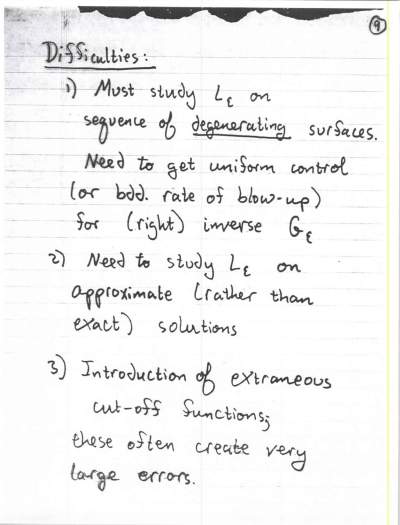 9
Difficulties:
1) Must study Lε on
sequence of degenerating surfaces.
Need to get uniform control
(or bdd. rate of blow-up)
for (right) inverse Gε
2) Need to study Lε on
approximate (rather than
exact) solutions
3) Introduction of extraneous
cut-off functions;
these often create very
large errors.